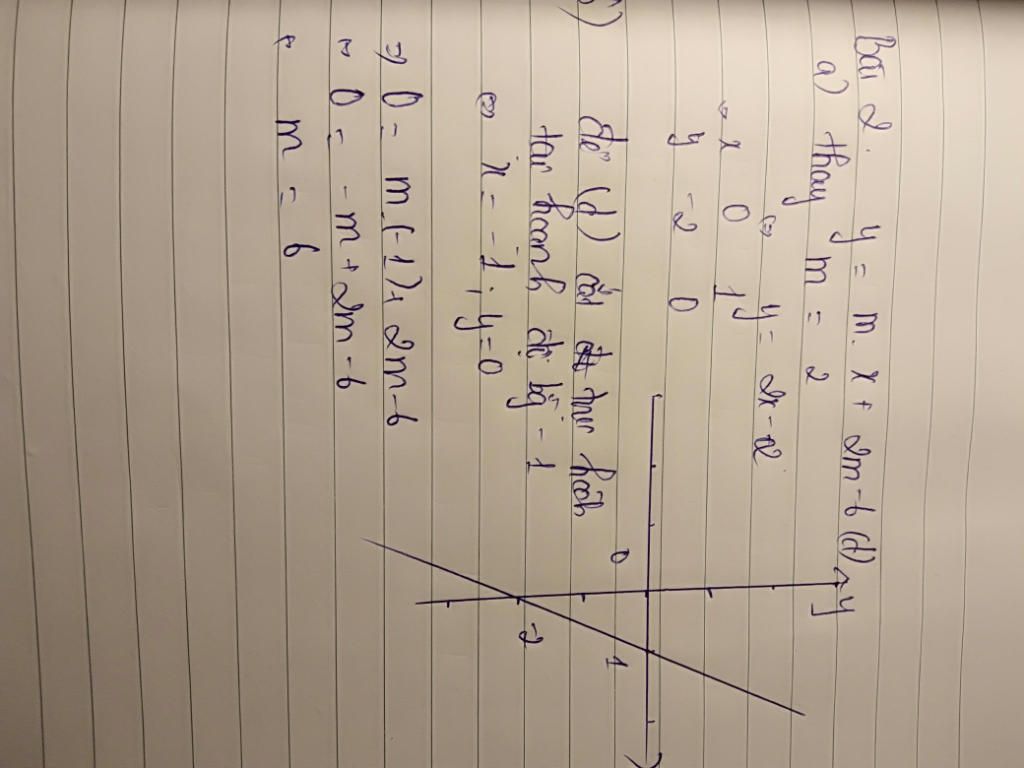 Bài 2. y = m. x + 2m-6 (d)
a) thay m = 2
⇔ y = 2x-2
x 0 1
y -2 0
y
0 1
-2
Để (d) cắt trục hoành
tại hoành độ bằng -1
⇔ x = -1; y=0
⇒ 0 = m.(-1)+ 2m-6
0 = -m+2m-6
m = 6